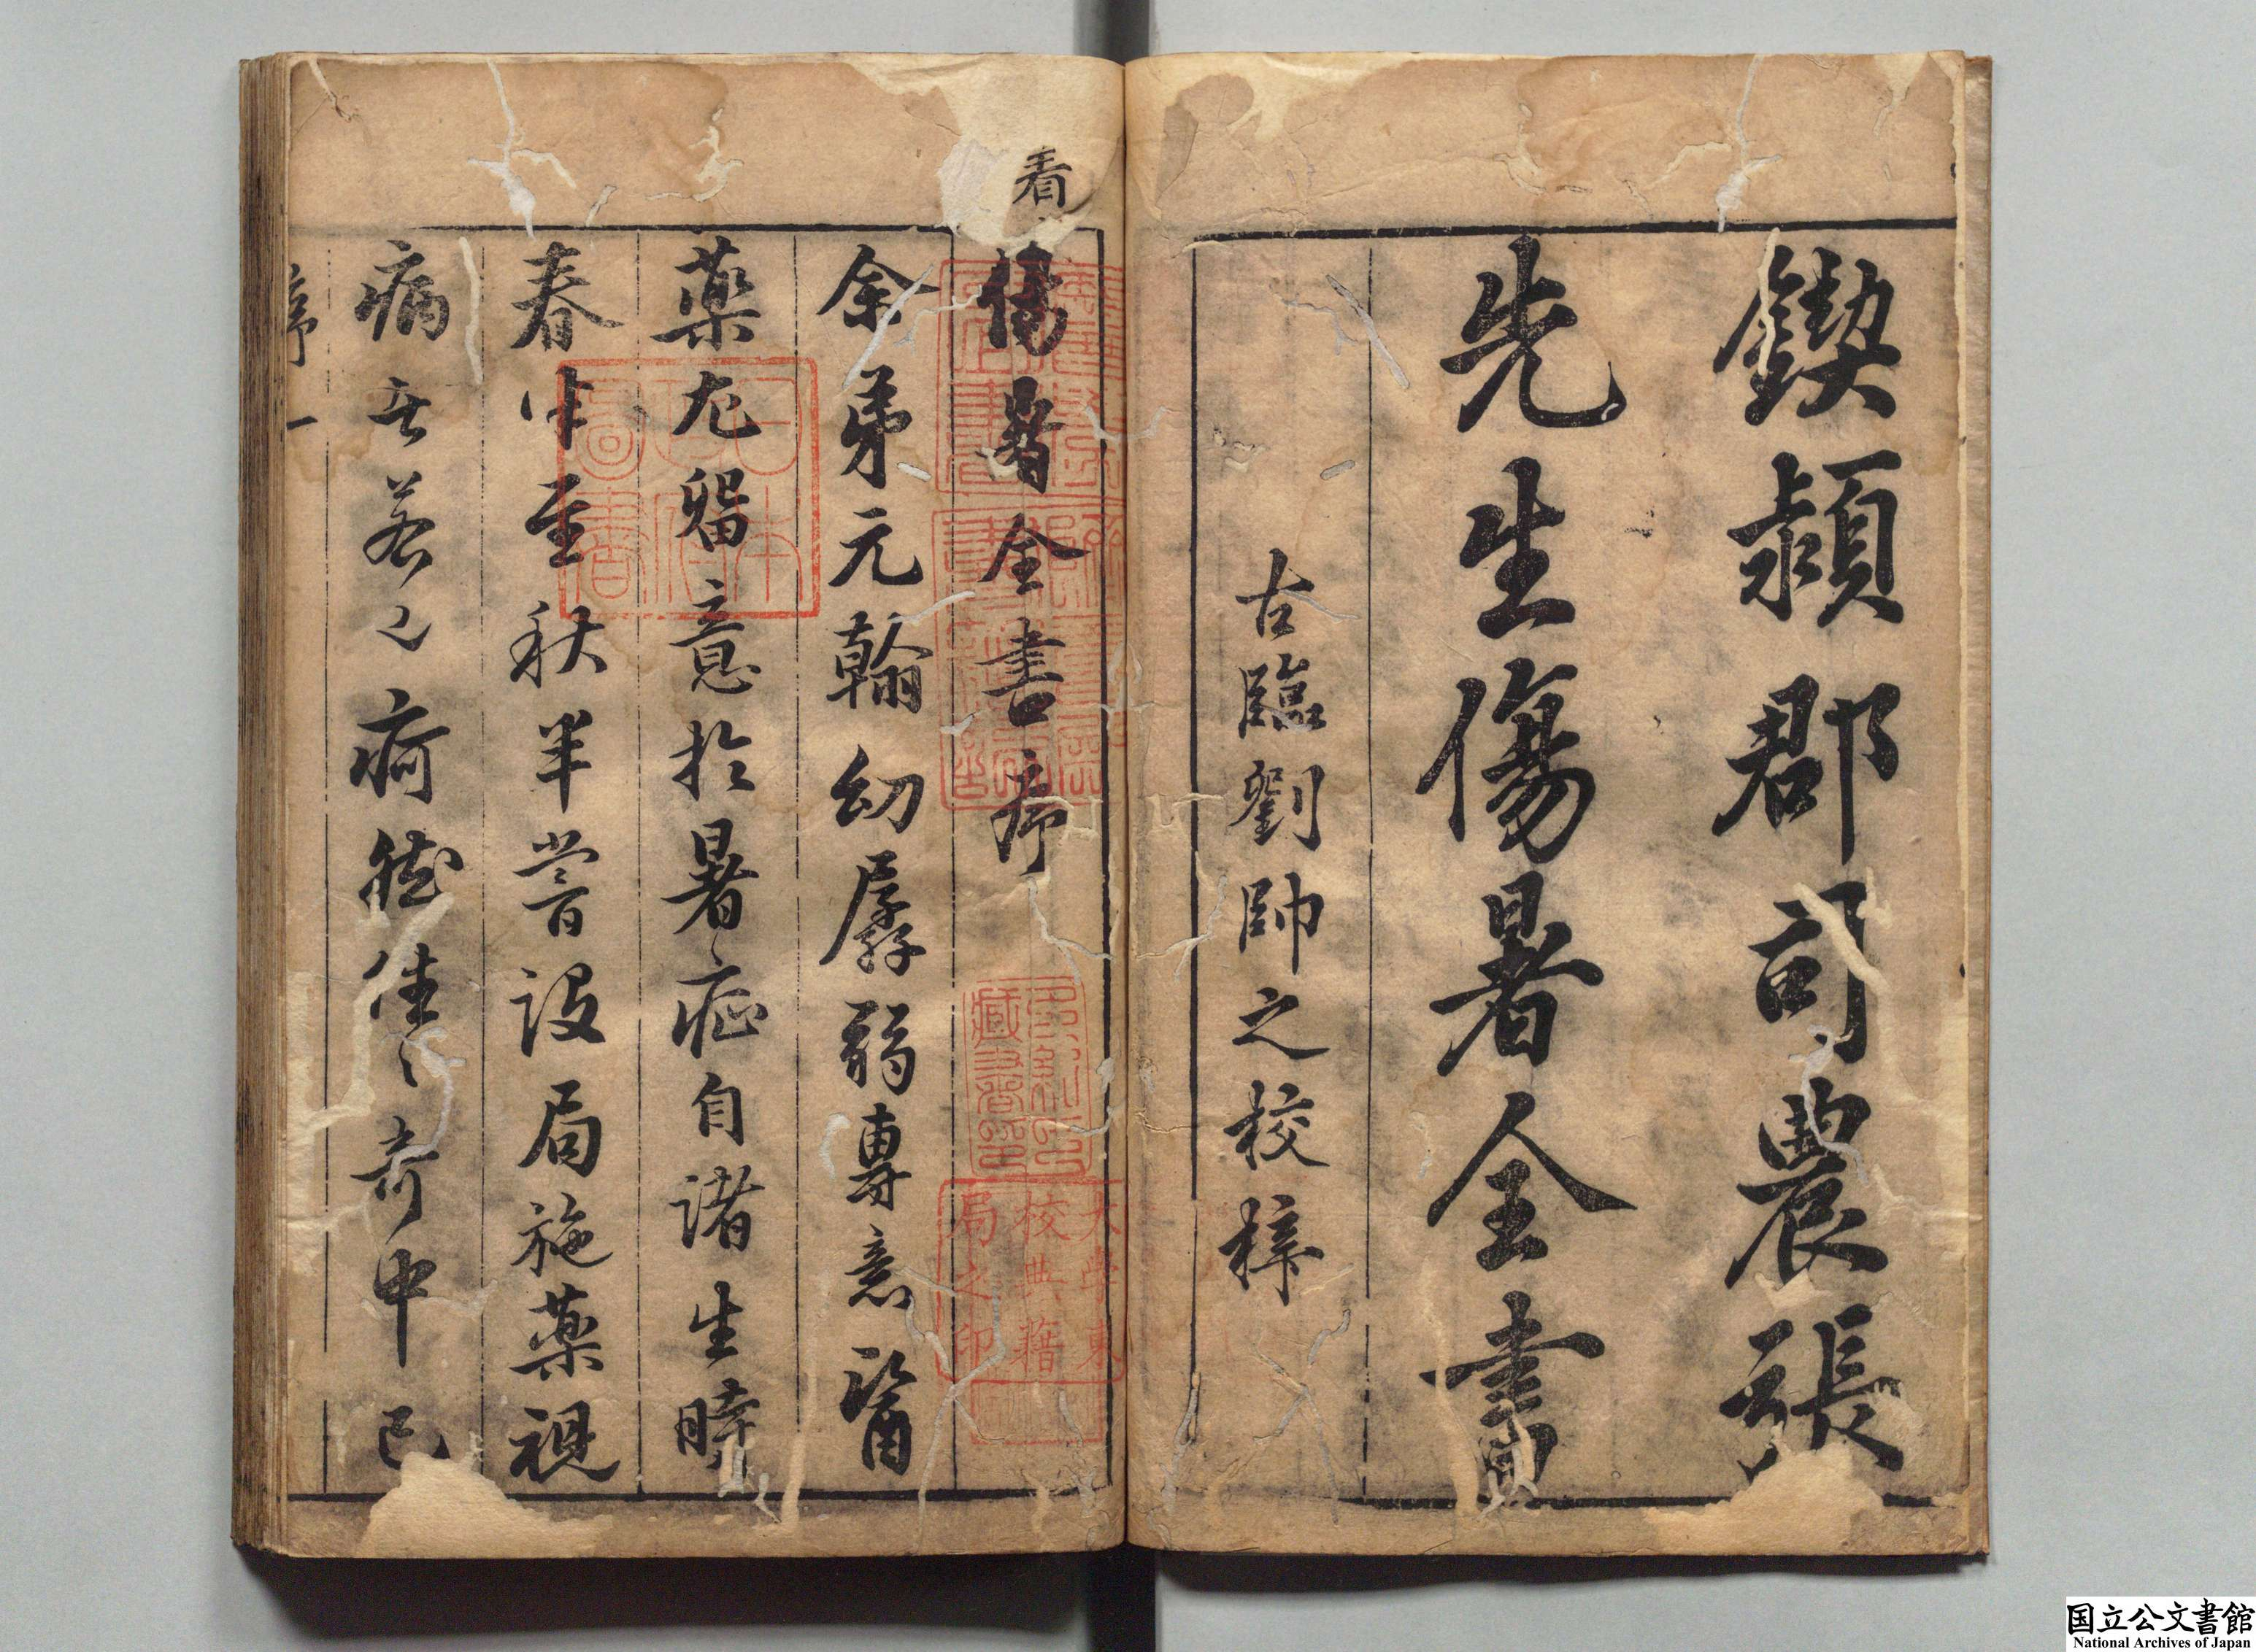 鍥潁郡司農張
先生傷暑全書
古臨劉帥之校梓
看
傷暑全書序
余弟元翰幼孱弱專意醫
藥尤留意於暑症自諸生時
春中至秋半嘗設局施藥視
病者若
痾然往々奇中已
序一
日本
政府
圖書
大學東
校典籍
局之印
国立公文書館
National Archives of Japan